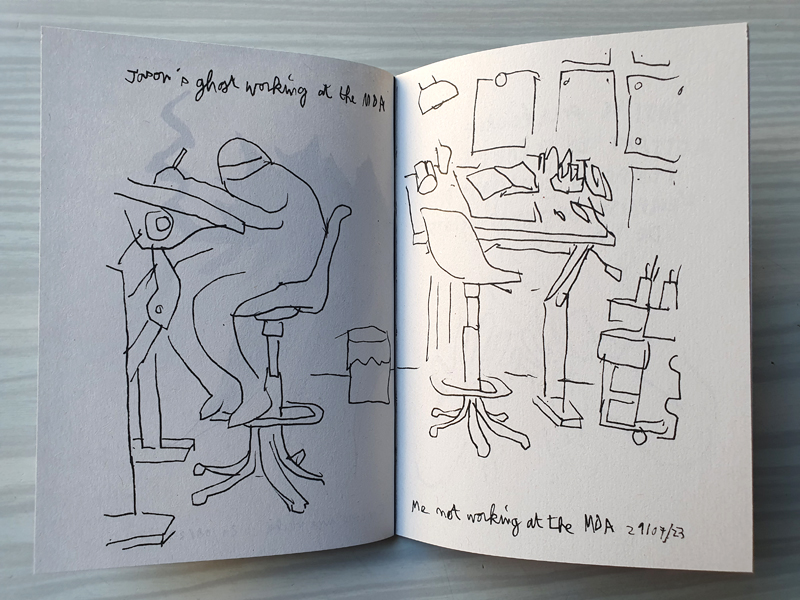 Jason's ghost working at the MDA
Me not working at the MDA 29/07/23